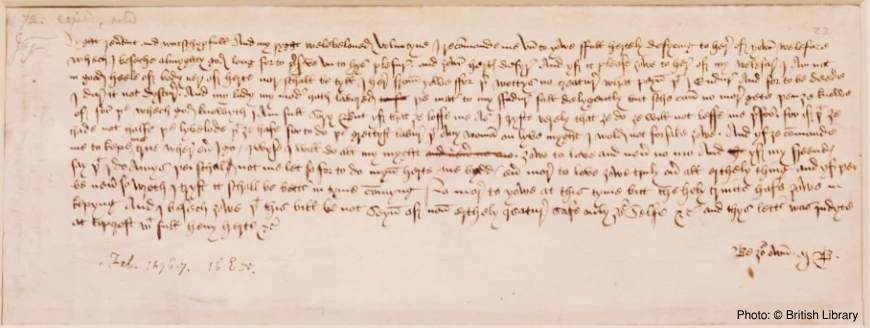 Ryght reverent and wurschypfull and my ryght welebeloved Voluntyne I recommande me vn to yowe ffull hertely desyring to here of yowr welefare
whech I beseche Almyghty god long for to preserve vn to hys plesure and yowr hertys desyre And yf it please yowe to here of my welefare I am not
in good heele of body ner of herte nor schall be tyll I here from yowe ffor þer wottys no creature what peyn þat I endure And for to be deede
I dure it not dyscure And my lady my moder hath labored þe mater to my ffadure full delygently but sche can no more gete þen ye knowe
of for þe whech god knowyth I am full sory But yf that ye loffe me as I tryste verely that ye do ye will not leffe me þerfor for if þat ye
hade not halfe þe lyvelode þat ye hafe for to do þe grettyst labure þat any woman on lyve myght I wold not forsake yowe And yf ye commande
me to kepe me true where euer I go I wyse I will do all my myght yowe to love and neuer no mo And yf my freendys
say þat I do amys þei schal not me let so for to do myn herte me bydds euer more to love yowe truly ouer all erthely thing and yf þei
be neuer so wroth I tryst it schall be better in tyme commyng No more to yowe at this tyme but the holy trinite hafe yowe in
kepyng And I besech yowe þat this bill be not seyn of non erthely creature safe only yowr selfe &c and thys letter was indyte
at Topcroft wyth full hevy herte &c
Be yowr own MB
Feb. 1476-7. 16 E.
Photo: © British Library